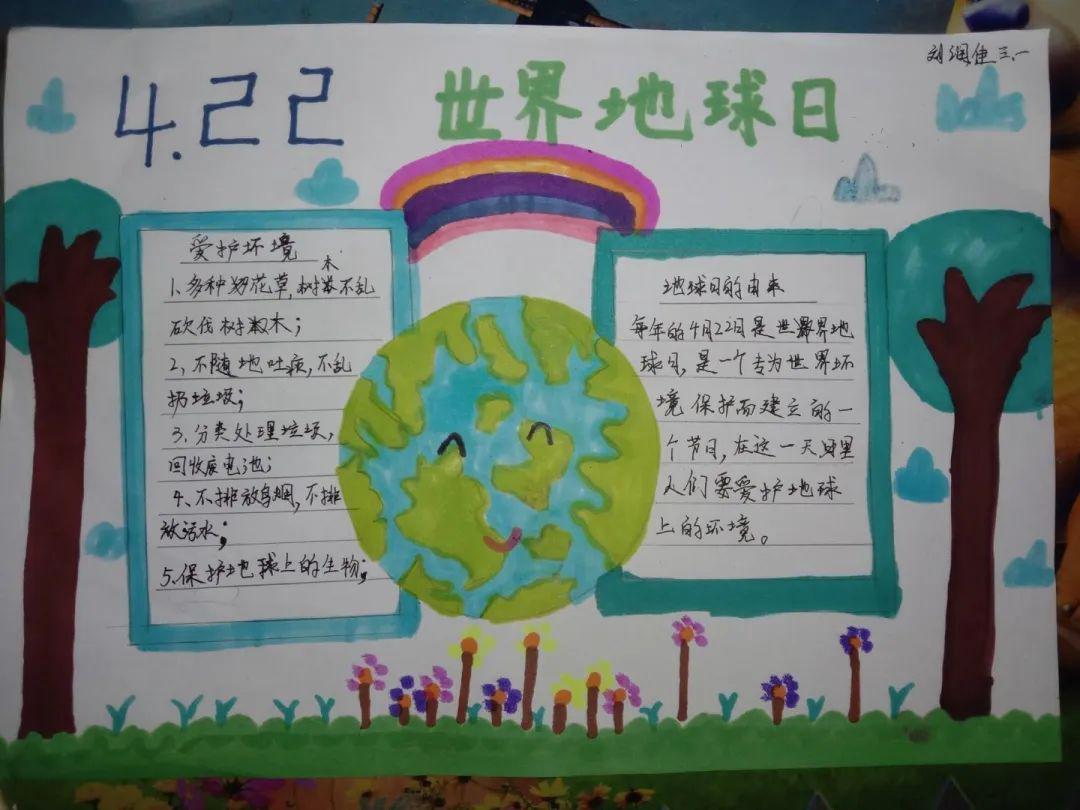 刘润佳 三.一
4.22 世界地球日
爱护环境
1、多种花草,树木不乱
砍伐树木;
2、不随地吐痰,不乱
扔垃圾;
3.分类处理垃圾,
回收废电池;
4、不排放烟,不排
放污水;
5.保护地球上的生物;
地球日的由来
每年的4月22日是世界地
球日,是一个专为世界环
境保护而建立的一
个节日,在这一天里
人们要爱护地球
上的环境。